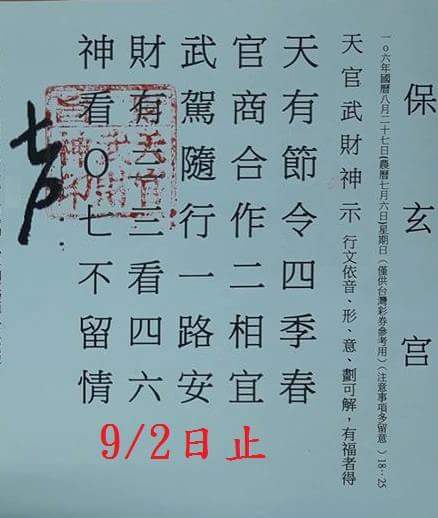 保玄宮
一０六年國曆八月二十七日(農曆七月六日)星期日(僅供台灣彩券參考用)(注意事項多留意)18：25
天官武財神示 行文依音、形、意、劃可解，有福者得
天有節令四季春
官商合作二相宜
武駕隨行一路安
財有三三看四六
神看０七不留情
9/2日止